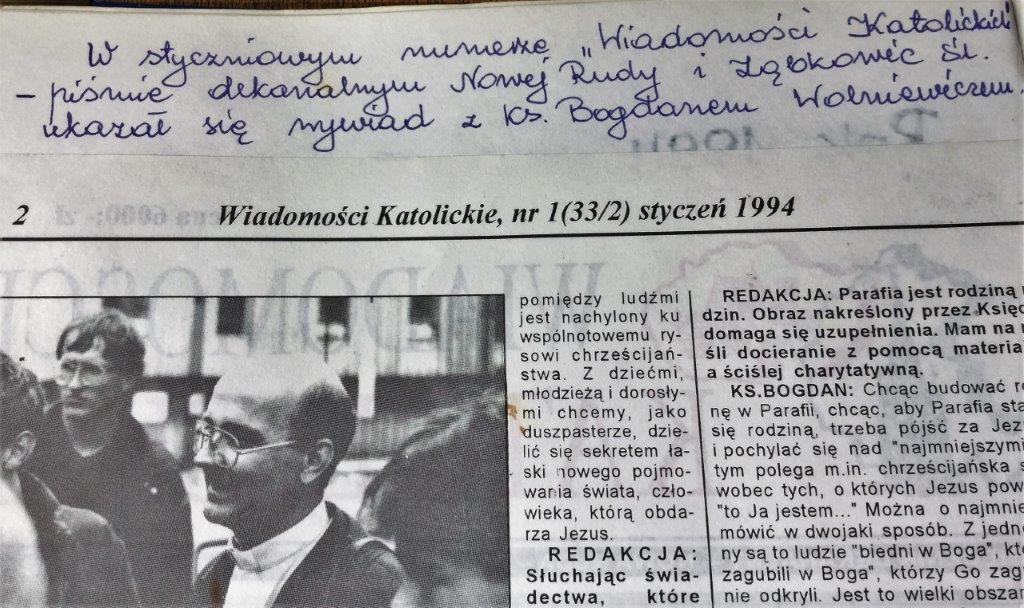 W styczniowym numerze „Wiadomości Katolickich"
– piśmie dekanalnym Nowej Rudy i Ząbkowic Śl.
ukazał się wywiad z ks. Bogdanem Wolniewiczem.
2 Wiadomości Katolickie, nr 1(33/2) styczeń 1994
pomiędzy ludźmi
jest nachylony ku
wspólnotowemu ry-
sowi chrześcijań-
stwa. Z dziećmi,
młodzieżą i dorosły-
mi chcemy, jako
duszpasterze, dzie-
lić się sekretem ła-
ski nowego pojmo-
wania świata, czło-
wieka, którą obda-
rza Jezus.
REDAKCJA:
Słuchając świa-
dectwa, które
REDAKCJA: Parafia jest rodziną
dzin. Obraz nakreślony przez Księ
domaga się uzupełnienia. Mam na
śli docieranie z pomocą materia
a ściślej charytatywną.
KS.BOGDAN: Chcąc budować
nę w Parafii, chcąc, aby Parafia sta
się rodziną, trzeba pójść za Jez
i pochylać się nad "najmniejszymi
tym polega m.in. chrześcijańska
wobec tych, o których Jezus pow
"to Ja jestem..." Można o najmnie
mówić w dwojaki sposób. Z jedne
ny są to ludzie "biedni w Boga", któ
zagubili w Boga", którzy Go zag
nie odkryli. Jest to wielki obsza